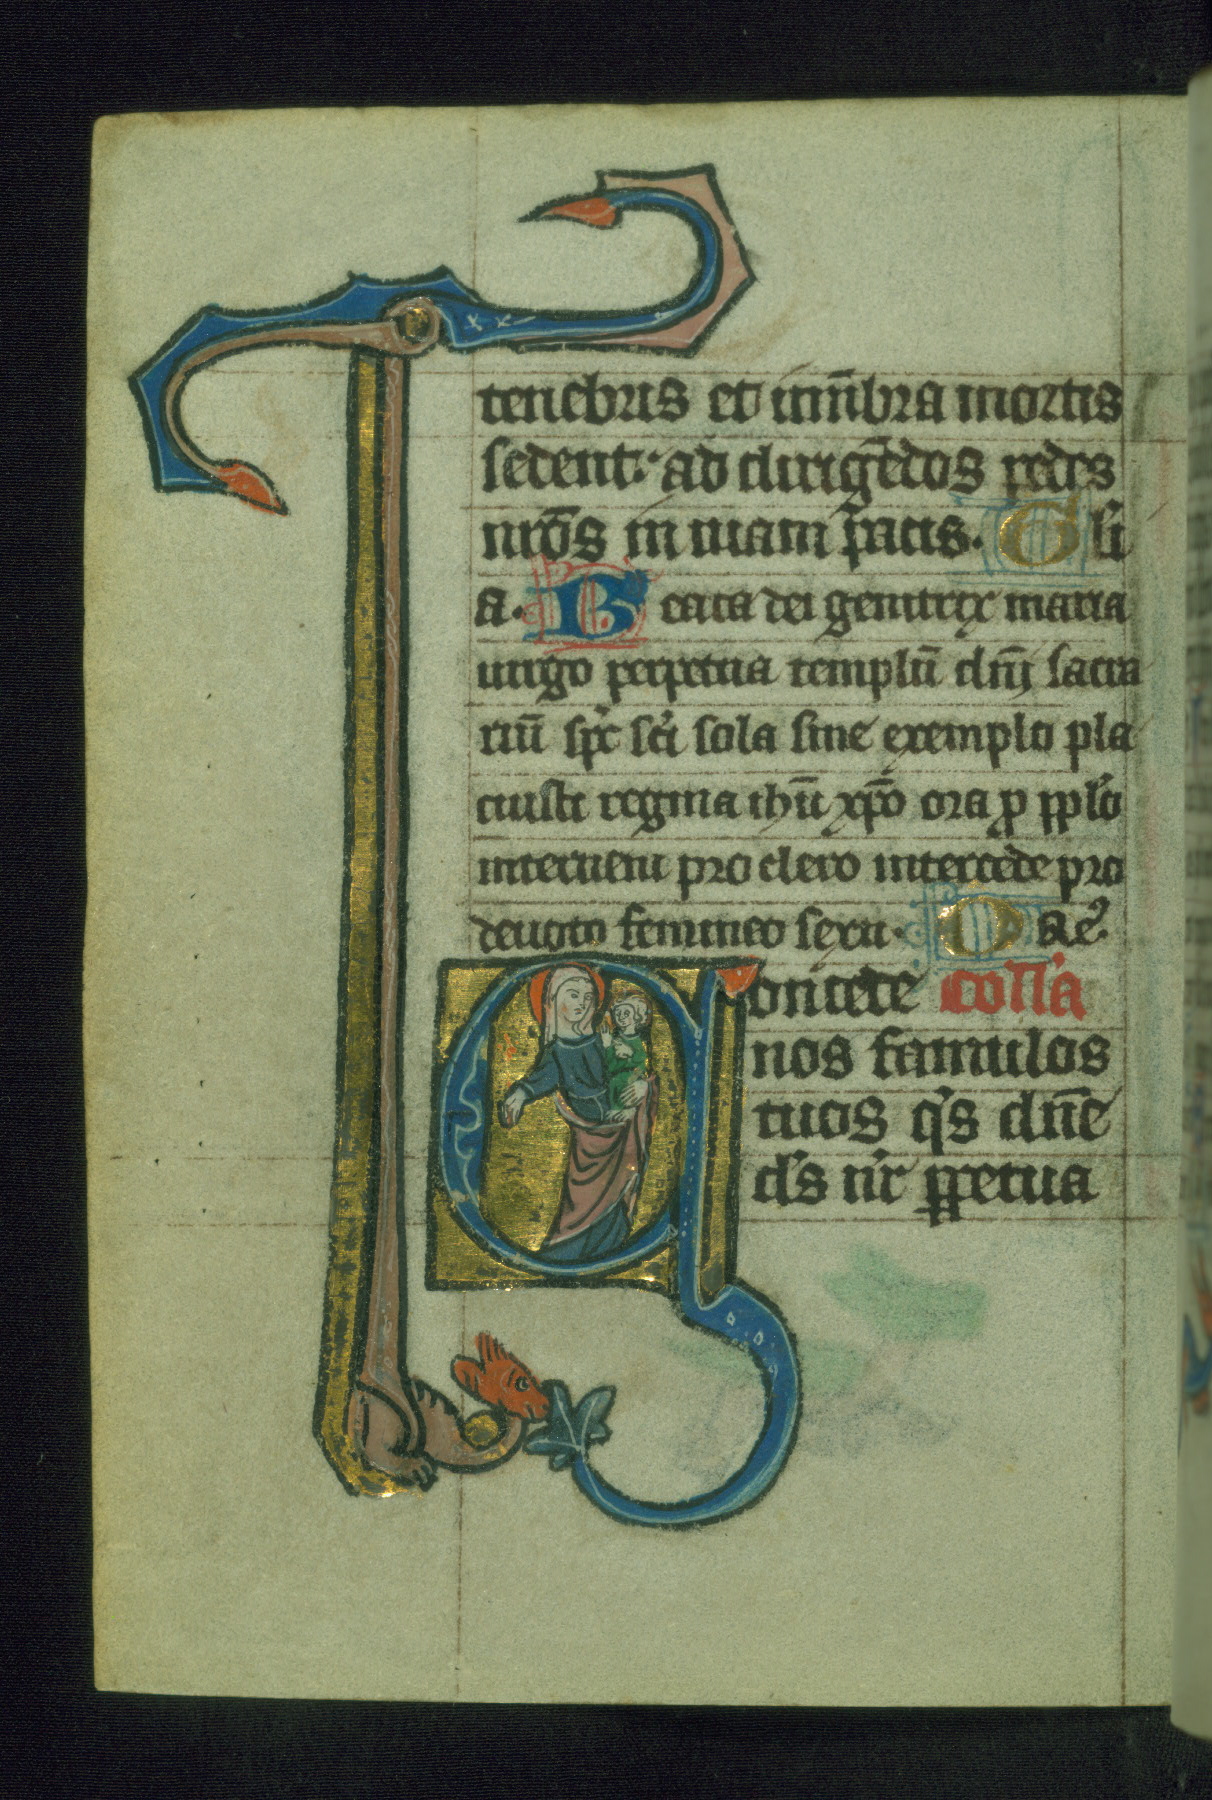 tenebris et in um̄bra mortis
sedent· ad dirigēdos pedes
nr̄os in uiam pacis· Gl'i
a· Beata dei genitrix maria
uirgo perpetua templū dn̄i sacra
riū sp̄c sc̄i sola sine exemplo pla
cuisti regina ihū xp̄o ora p̄ pp̄lo
interueni pro clero intercede pro
deuoto femineo sexu· O a e'
Concede coll'a
nos famulos
tuos q's dn̄e
d's n'r ꝑpetua